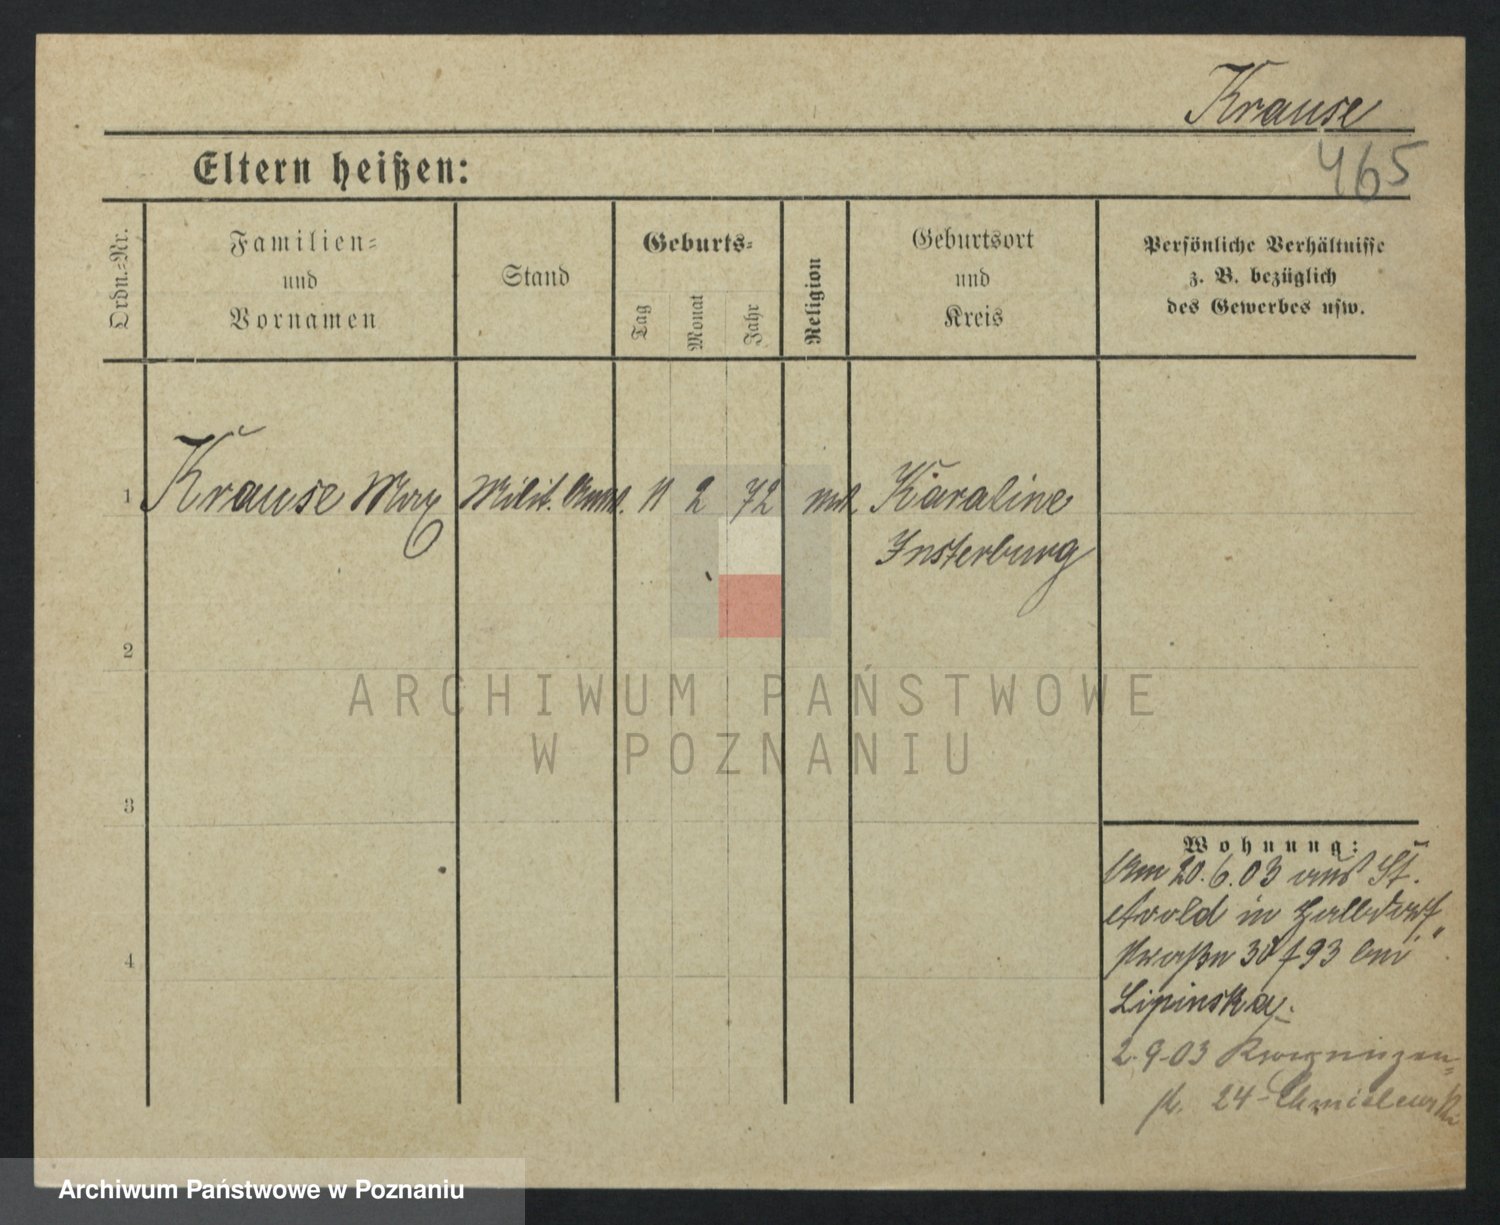 Krause
465
Eltern heißen:
Ordn.-Nr.
Familien-
und
Vornamen
Stand
Geburts-
Tag
Monat
Jahr
Religion
Geburtsort
und
Kreis
Persönliche Verhältnisse
z. B. bezüglich
des Gewerbes usw.
1 Krause Max Milit. 11 2 72 Karaline
Insterburg
2
3
4
Wohnung:
Am 20.6.03 aus St.
Avold in Halbdorf
straße 30 f 93 bei
Lipinska.
2.9.03
st. 24 - Chmielewski
ARCHIWUM PAŃSTWOWE
W POZNANIU
Archiwum Państwowe w Poznaniu